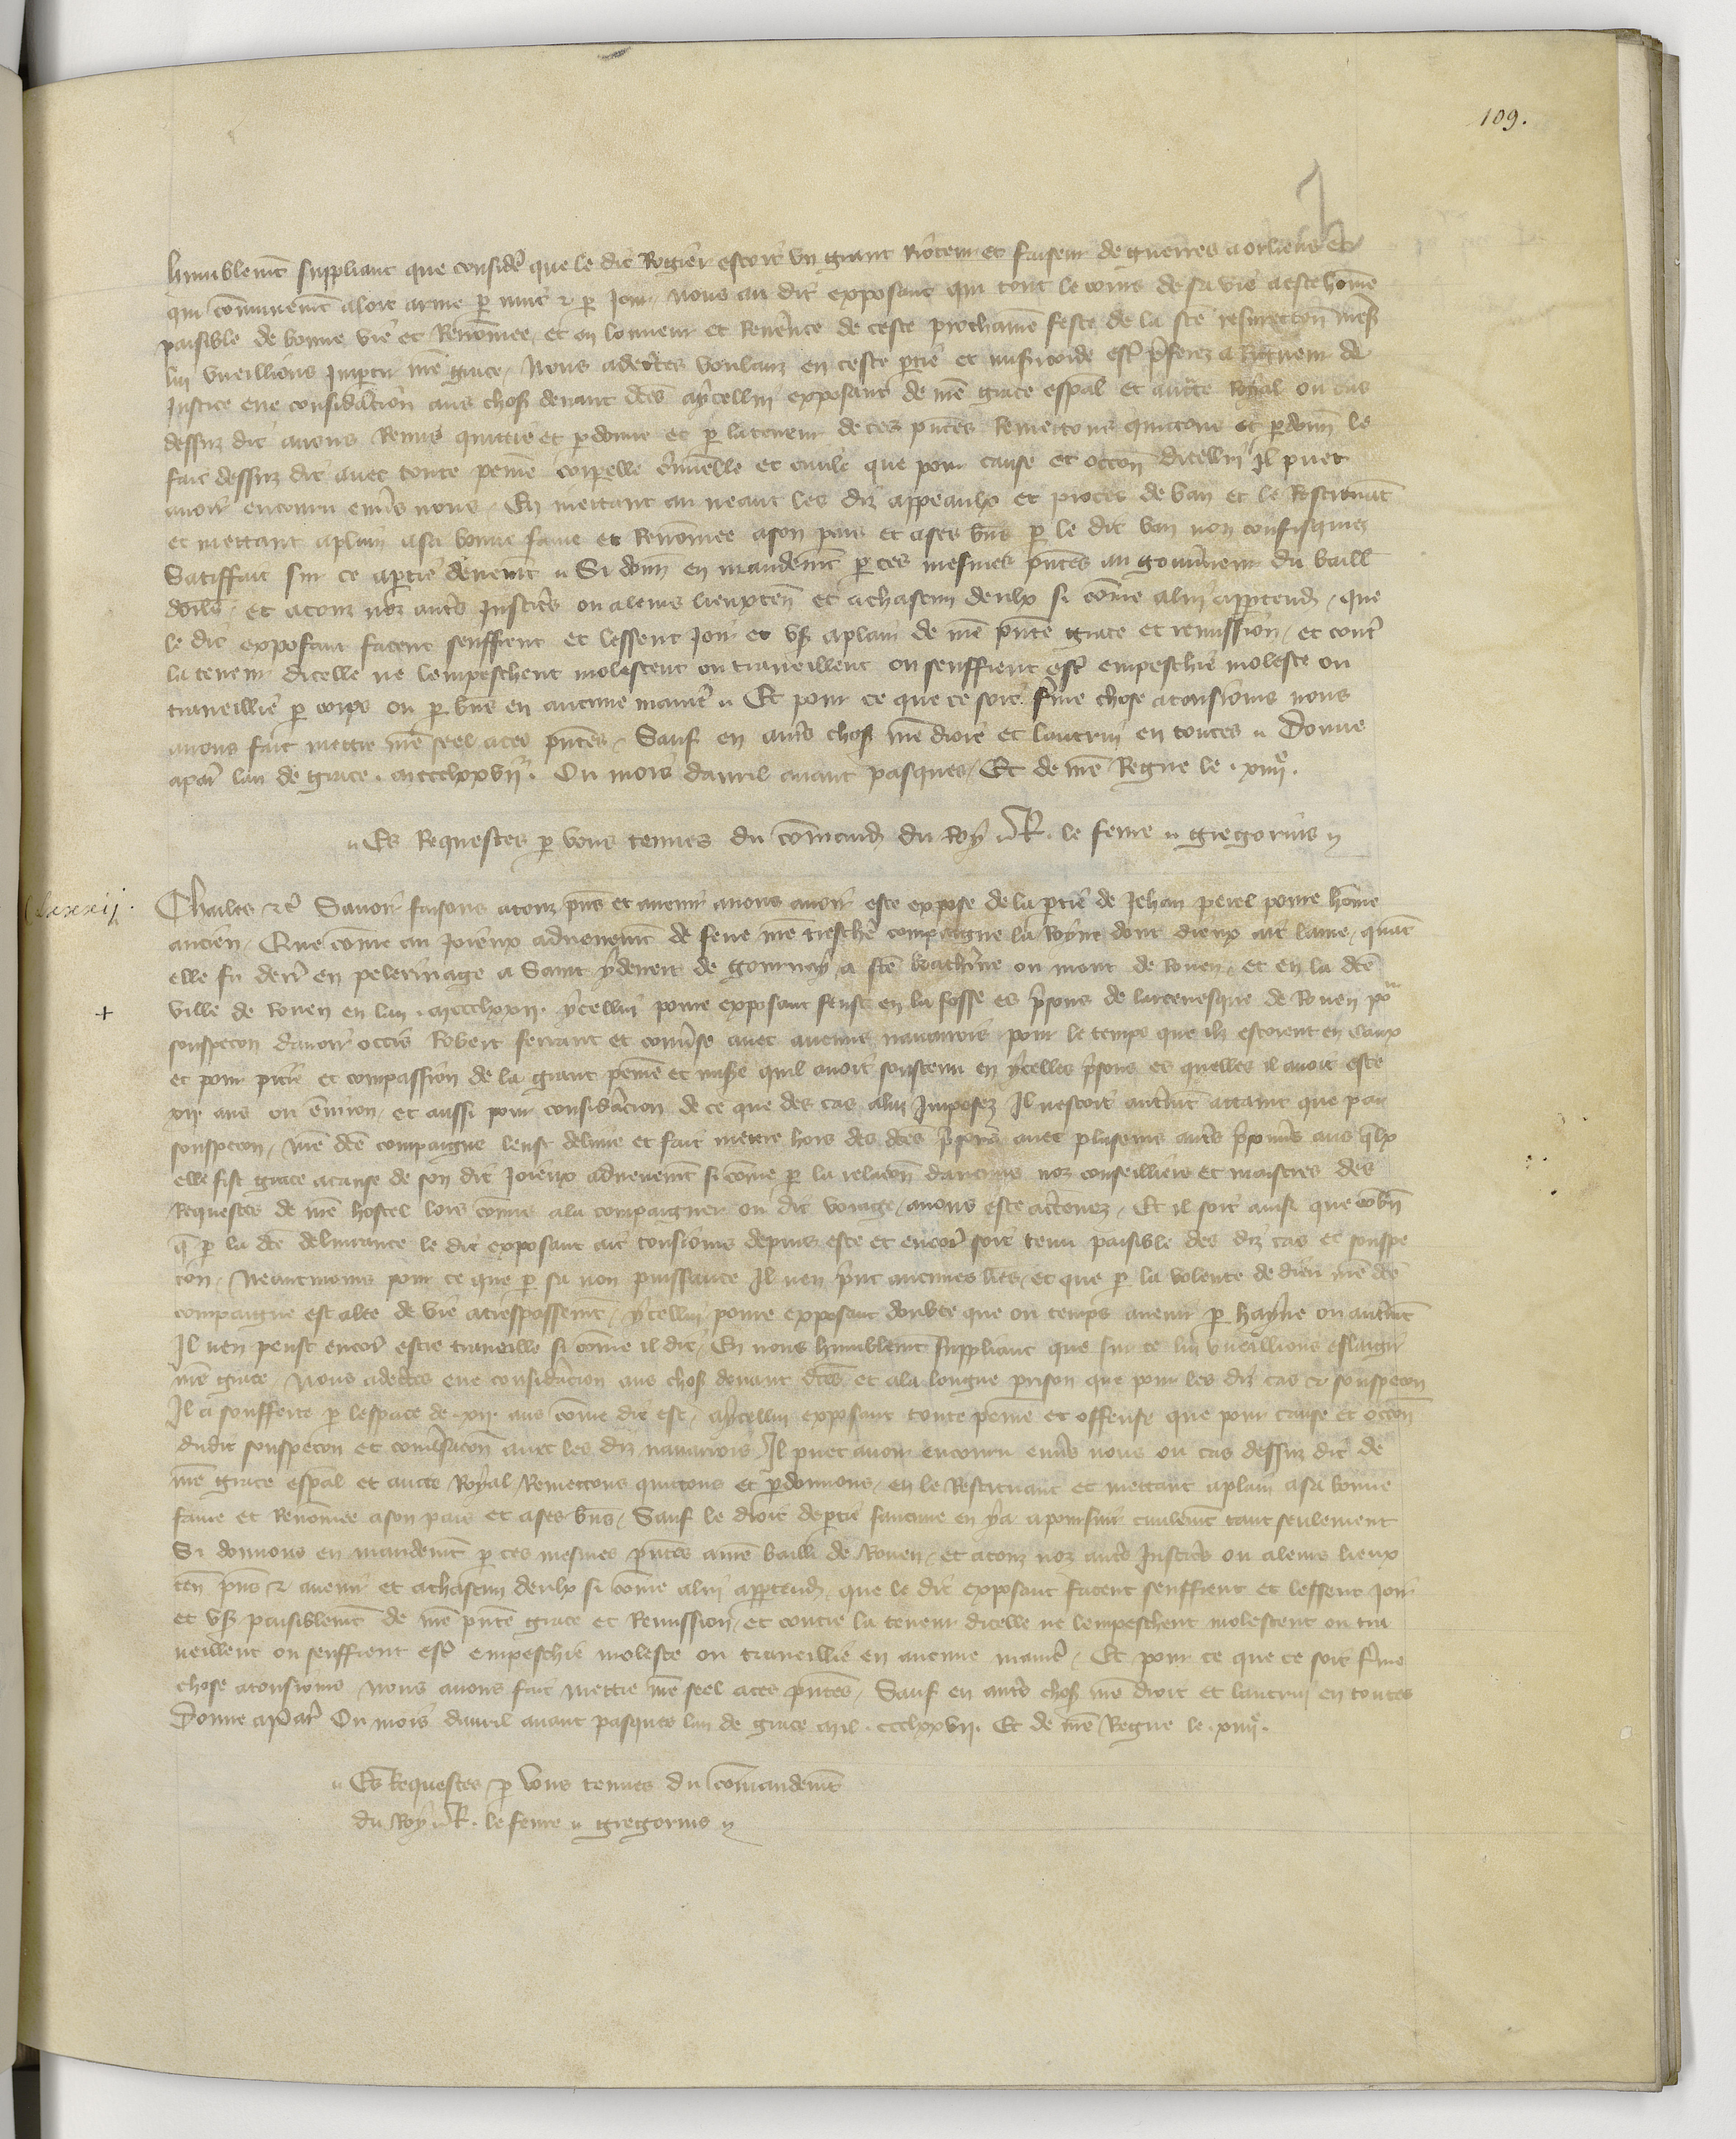 109.
humblemt suppliant que considere que le dit Rogier estoit un grant Rioteur et faiseur de guerres a orliens et
qui comunemt aloit arme p nuit & p jour, nous au dit exposant qui tout le cours de sa vie a este home
paisible de bonne vie et Renomee, et en lonneur et Reverence de ceste prochaine feste de la ste resurrection nres
lui vueillions impartir nre grace, Nous adecertes voulanz en ceste ptie et misericorde estre preferez a Rigueur de
Justice eue consideration aus choses devant dces aycellui exposant de nre grace espal et aucte Royal ou cas
dessuz dit avons Remis quittie et pdonne et p la teneur de ces pntes Remettons quittons et pdonn le
fait dessuz dit avec toute peine corporelle criminelle et civile que pour cause et occon dicellui il puet
avoir encouru envs nous, En mettant au neant les diz appeaulx et proces de ban et le Restituant
et mettant aplain a sa bonne fame et Renomee a son pais et a ses bns p le dit ban non confisquies
Satiffait sur ce a ptie devemt. Si donn en mandemt p ces mesmes pntes au gouverneur du baill
dorlns, et a touz noz autres Justiciers ou a leurs lieuxten et a chascun deulx si come a lui appartendra, que
le dit exposant facent seuffrent et lessent joir et user aplain de nre pnte grace et remission, et contre
la teneur dicelle ne lempeschent molestent ou traveillent ou seuffrent estre empeschie moleste ou
traveillie p corps ou p bns en aucune maniere. Et pour ce que ce soit ferme chose a tousjours nous
avons fait mettre nre seel a ces pntes, Sauf en autres choses nre droit et lautrui en toutes. Donne
a paris lan de grace mccclxxvii. Ou mois davril avant pasques, Et de nre Regne le xiiiio.
Es Requestes p vous tenues du comand du Roy. R. le fevre. gregorius
Clxxxij.
Charles &c Savoir faisons a touz pns et avenir a nous avoir este expose de la ptie de Jehan perel povre home
ancien, Que come au joieux advenemt de feue nre treschere compaigne la Royne dont dieux ait lame, quant
elle fu derr en pelerinage a Saint ydevert de gournay, a ste katherine ou mont de Rouen, et en la dce
+
ville de Rouen en lan mccclxxii. ycellui povre exposant feust en la fosse es prisons de larcevesque de Rouen pour
souspecon davoir occis Robert ferrant et converse avec aucuns navarrois pour le temps que ilz estoient en Caux
et pour pitie et compassion de la grant peine et misere quil avoit soustenu en ycelles prisons es quelles il avoit este
xii. ans ou environ, et aussi pour consideracion de ce que des cas a lui imposez il nestoit autremt attaint que par
souspecon, nre dce compaigne leust delivre et fait mettre hors des dces prisons avec plusieurs autres prisonns aus qlx
elle fist grace a cause de son dit joieux advenemt si come p la relacon daucuns noz conseilliers et maistres des
Requestes de nre hostel lors comis a la compaigner ou dit voiage, avons este acertenez, Et il soit ainsi que combn
q p la dce delivrance le dit exposant ait tousjours depuis este et encores soit tenu paisible des diz cas et souspe
con, Neantmoins pour ce que p sa non puissance il nen print aucunes lres, et que p la volente de dieu nre dce
compaigne est alee de vie a trespassemt, ycellui povre exposant doubte que ou temps avenir p hayne ou autremt
Il nen peust encores estre traveillie si come il dit, En nous humblemt suppliant que sur ce lui vueillions eslargir
nre grace, Nous adecertes eue consideracion aus choses devant dces et a la longue prison que pour les diz cas & souspecon
Il a soufferte p lespace de xii. ans come dit est, aycellui exposant toute peine et offense que pour cause et occon
dudit souspecon et conversacon avec les diz navarrois il puet avoir encouru envs nous ou cas dessuz dit de
nre grace espal et aucte Royal Remettons quittons et pdonnons, en le Restituant et mettant aplain a sa bonne
fame et Renomee a son pais et a ses bns, Sauf le droit de ptie saucune en ya a poursuir civilemt tant seulement
Si donnons en mandemt p ces mesmes pntes a nre bailli de Rouen, et a touz noz autres Justiciers ou a leurs lieux
ten pns & avenir et a chascun deulx si come a lui appartendra, que le dit exposant facent seuffrent et lessent joir
et user paisiblemt de nre pnte grace et Remission, et contre la teneur dicelle ne lempeschent molestent ou tra
veillent ou seuffrent estre empeschie moleste ou traveillie en aucune maniere, Et pour ce que ce soit ferme
chose a tousjours Nous avons fait mettre nre seel a ces pntes, Sauf en autres choses nre droit et lautrui en toutes
Donne a Paris Ou mois davril avant pasques lan de grace mil. ccclxxvii. Et de nre Regne le xiiiio.
Es Requestes p vous tenues du comandemt
du Roy. R. le fevre. gregorius